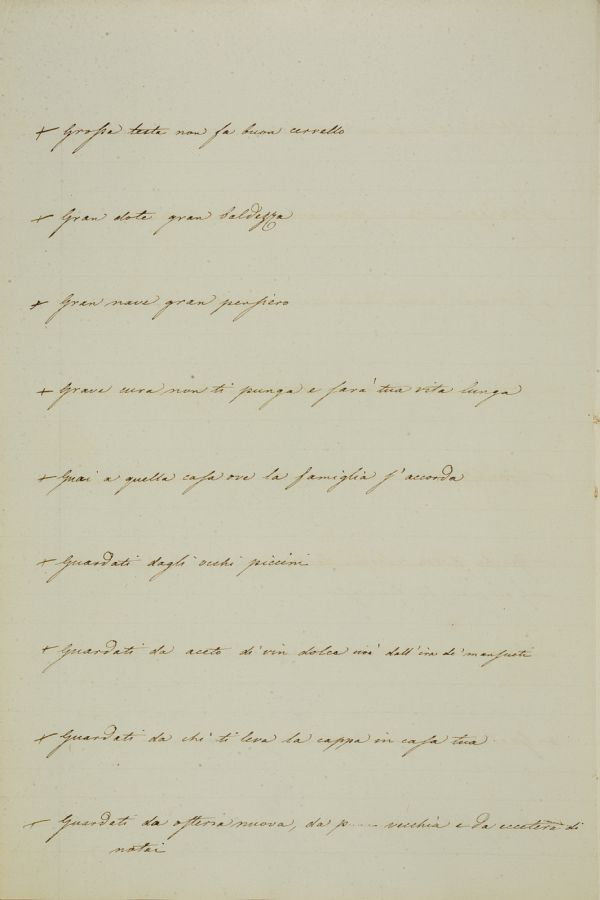 + Grossa testa non fa buon cervello
+ Gran dote gran baldezza
+ Gran nave gran pensiero
+ Grave cura non ti punga e sarà tua vita lunga
+ Guai a quella casa ove la famiglia s'accorda
+ Guardati dagli occhi piccini
+ Guardati da aceto di vin dolce cioè dall'ira de' mansueti
+ Guardati da chi ti leva la cappa in casa tua
+ Guardati da osteria nuova, da p---- vecchia e da eccetera di
notai